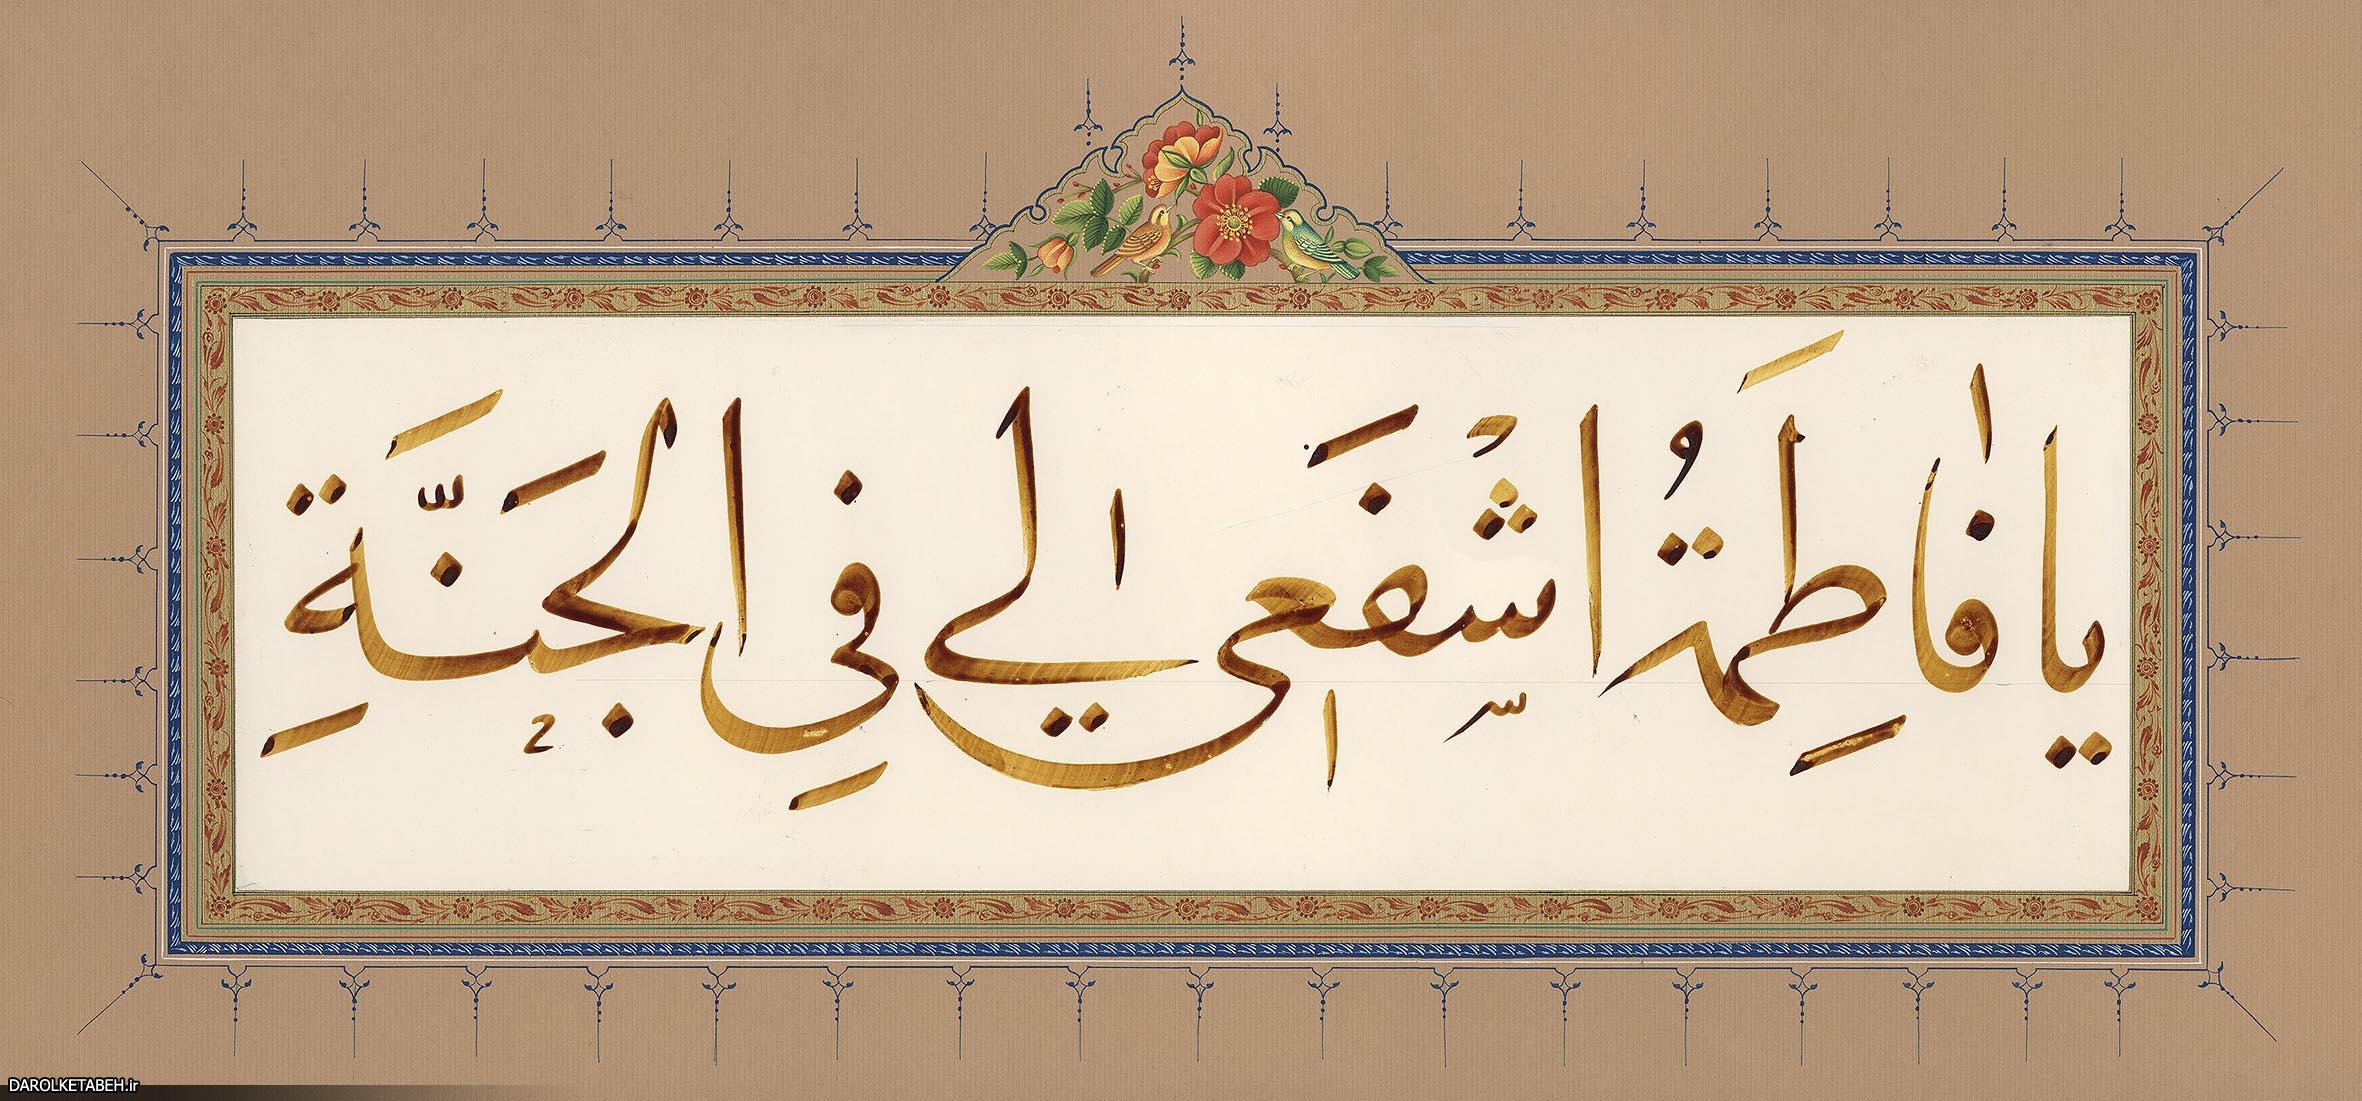 يا فَاطِمَةُ اشْفَعي لي فِي الجَنَّةِ
DAROLKETABEH.ir